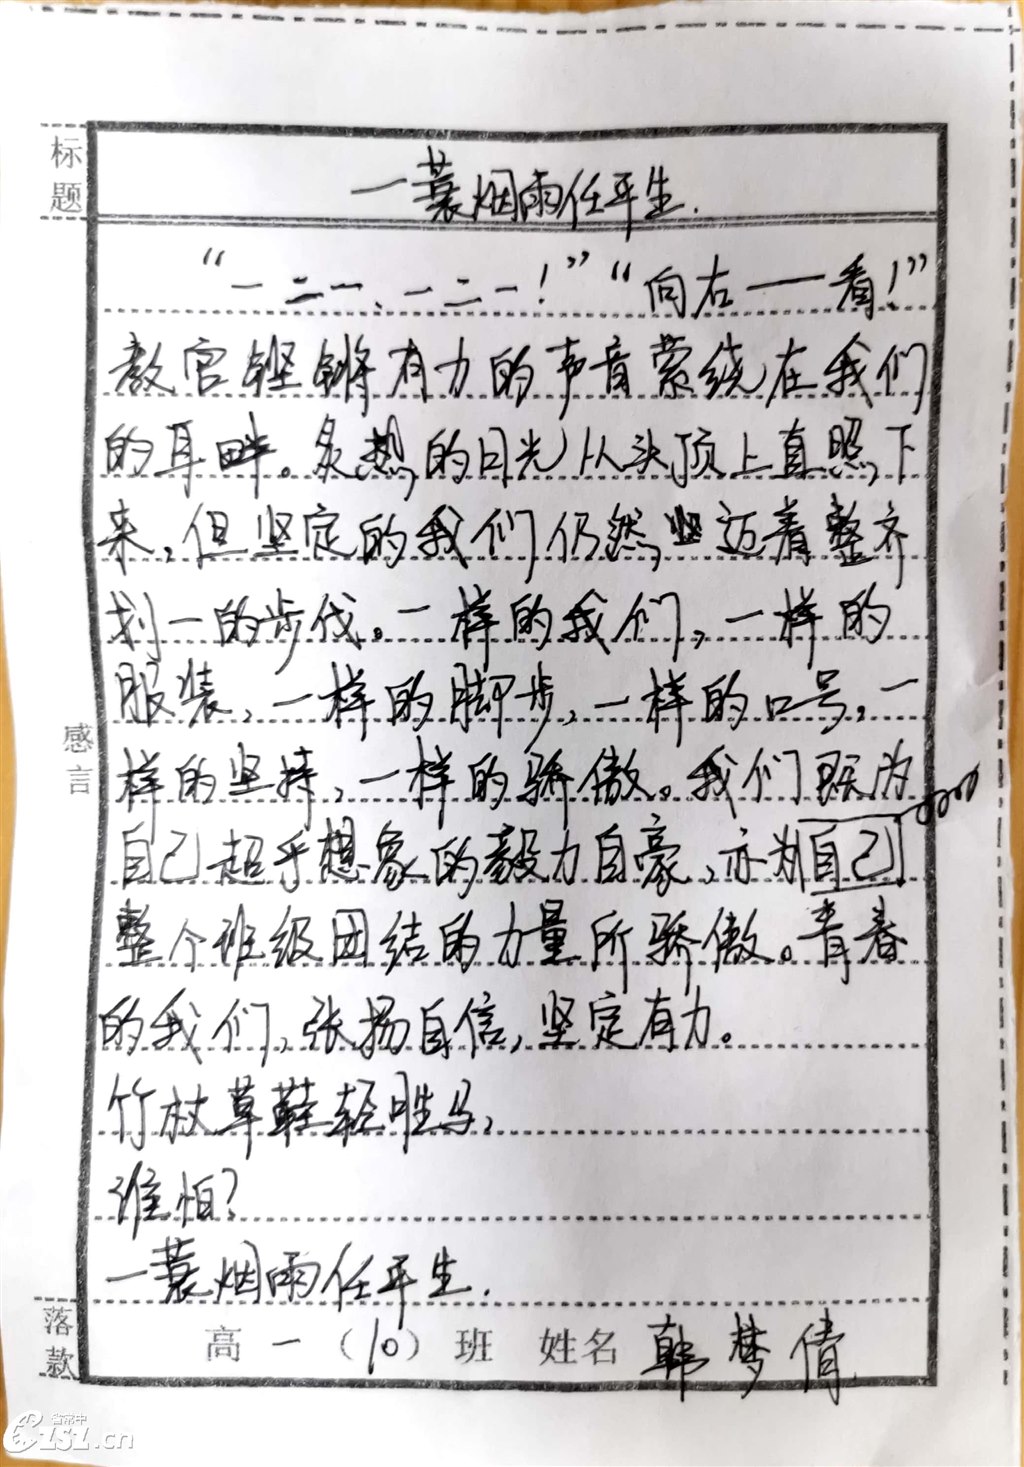 标题
一蓑烟雨任平生.
“一二一、一二一!”“向右——看!”
教官铿锵有力的声音萦绕在我们
的耳畔。炙热的日光从头顶上直照下
来,但坚定的我们仍然迈着整齐
划一的步伐。一样的我们,一样的
服装,一样的脚步,一样的口号,一
样的坚持,一样的骄傲。我们既为
自己超乎想象的毅力自豪,亦为自己
整个班级团结的力量所骄傲。青春
的我们,张扬自信,坚定有力。
竹杖草鞋轻胜马,
谁怕?
一蓑烟雨任平生.
感言
落款
高一(10)班 姓名 韩梦倩
省常中
CZSZ.cn